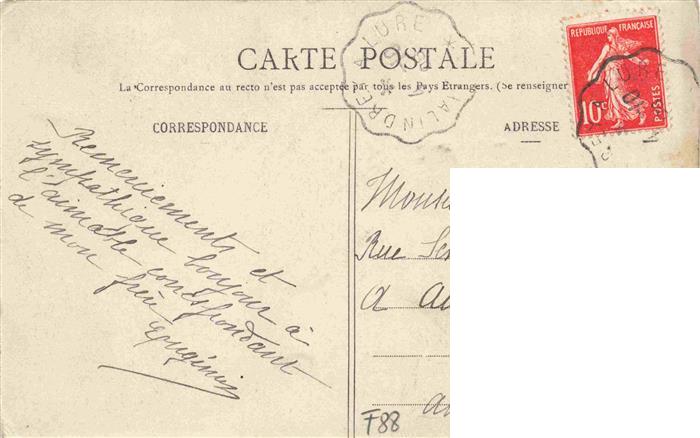 CARTE POSTALE
La Correspondance au recto n'est pas acceptée par tous les Pays Etrangers. (Se renseigner
CORRESPONDANCE
ADRESSE
REPUBLIQUE FRANÇAISE
10c
POSTES
VALINDREY A LURE
LURE
Remerciements et
sympathique bonjour à
l'aimable correspondant
de mon frère
Eugénie
Rue
A
F88